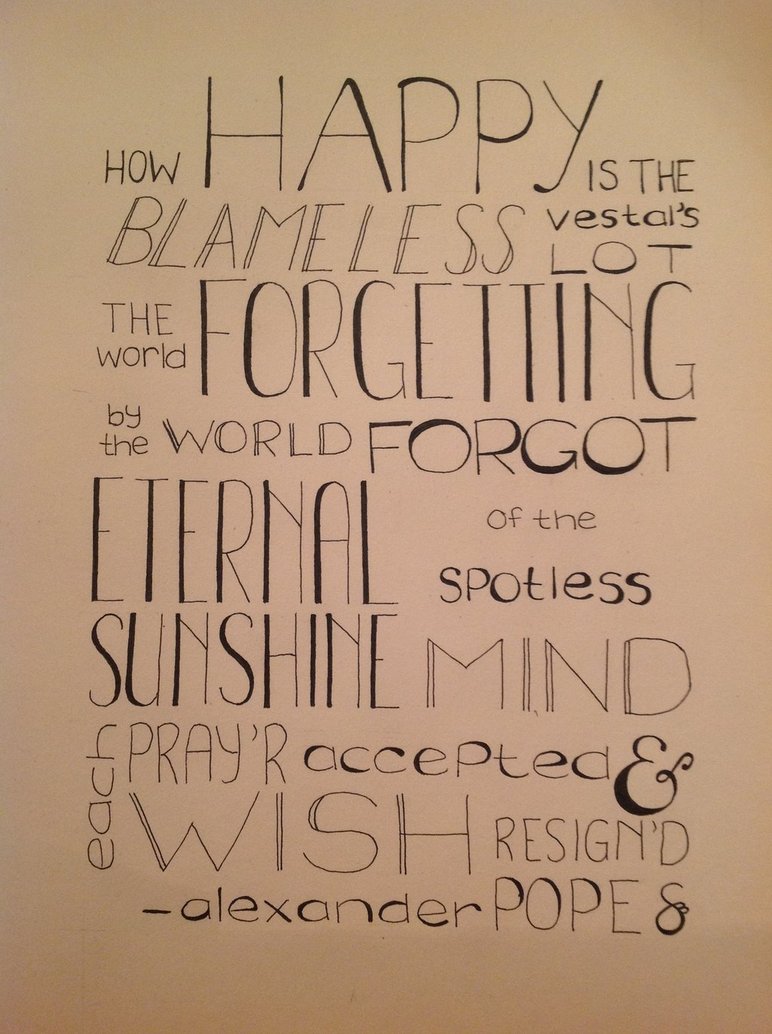 HOW HAPPY IS THE
BLAMELESS vestal's LOT
THE world FORGETTING
by the WORLD FORGOT
ETERNAL SUNSHINE
of the spotless MIND
each PRAY'R accepted &
WISH RESIGN'D
-alexander POPE &